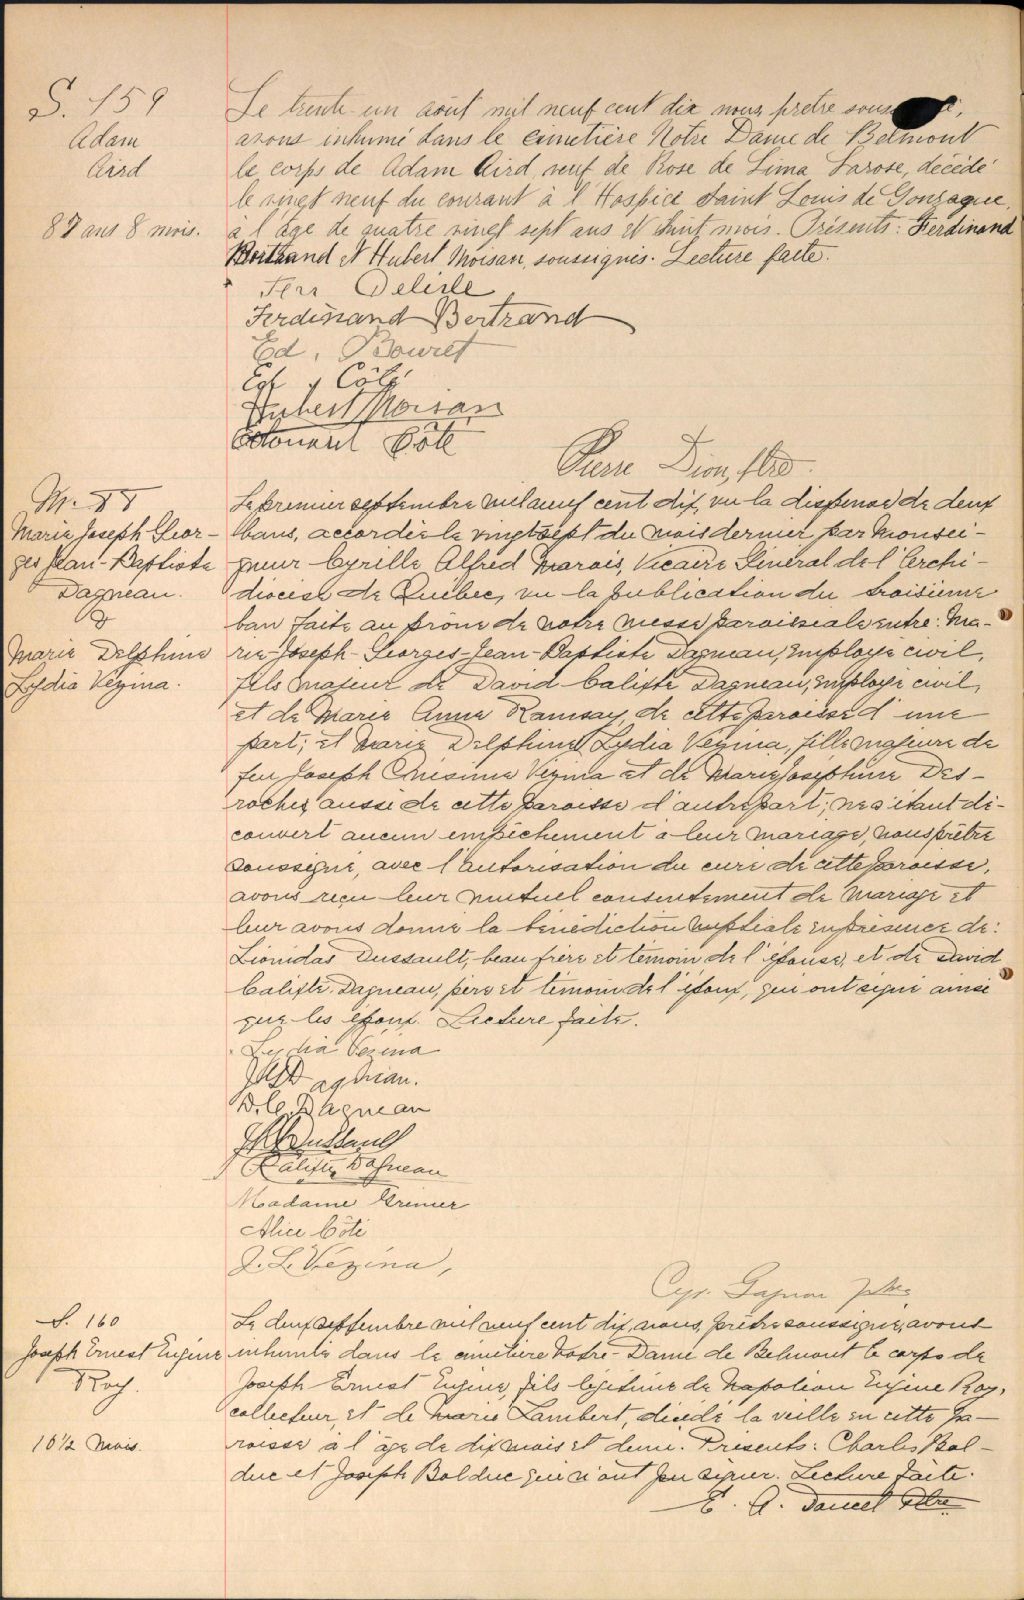 S. 159
Adam
Aird
87 ans 8 mois.
Le trente-un août mil neuf cent dix nous, prêtre
avons inhumé dans le cimetière Notre Dame de Belmont
le corps de Adam Aird, veuf de Rose de Lima Larose, décédé
le vingt neuf du courant à l'Hospice Saint Louis de Gonzague,
à l'âge de quatre vingt sept ans et huit mois. Présents: Ferdinand
Bertrand et Hubert Moisan, soussignés. Lecture faite.
Delisle
Ferdinand Bertrand
Ed. Bouret
Côté
Hubert Moisan
Edouard Côté
Pierre Dion, ptre.
M. 55
Marie Joseph Geor-
ges Jean-Baptiste
Dagneau.
&
Marie Delphine
Lydia Vézina.
Le premier septembre mil neuf cent dix, vu la dispense de deux
bans, accordée le vingt sept du mois dernier par Monsei-
gneur Cyrille Alfred Marois, Vicaire Général de l'Archi-
diocèse de Québec, vu la publication du troisième
ban faite au prône de notre messe paroissiale entre: Ma-
rie-Joseph-Georges-Jean-Baptiste Dagneau, employé civil,
fils majeur de David Calixte Dagneau, employé civil,
et de Marie Anne Ramsay, de cette paroisse d'une
part; et Marie Delphine Lydia Vézina, fille majeure de
feu Joseph Onésime Vézina et de Marie Joséphine Des-
roches, aussi de cette paroisse d'autre part; ne s'étant dé-
couvert aucun empêchement à leur mariage, nous prêtre
soussigné, avec l'autorisation du curé de cette paroisse,
avons reçu leur mutuel consentement de mariage et
leur avons donné la bénédiction nuptiale en présence de:
Léonidas Dussault, beau frère et témoin de l'épouse, et de David
Calixte Dagneau, père et témoin de l'époux, qui ont signé ainsi
que les époux. Lecture faite.
Lydia Vézina
Dagneau.
D. C. Dagneau
Dussault
Calixte Dagneau
Madame Grenier
Alice Côté
J. L. Vézina,
Cyr. Gagnon ptre
S. 160
Joseph Ernest Eugène
Roy.
10 1/2 mois.
Le deux septembre mil neuf cent dix, nous, prêtre soussigné, avons
inhumé dans le cimetière Notre-Dame de Belmont le corps de
Joseph Ernest Eugène, fils légitime de Napoléon Eugène Roy,
collecteur, et de Marie Lambert, décédé la veille en cette pa-
roisse à l'âge de dix mois et demi. Présents: Charles Bol-
duc et Joseph Bolduc qui n'ont pu signer. Lecture faite.
E. A. Doucet Ptre